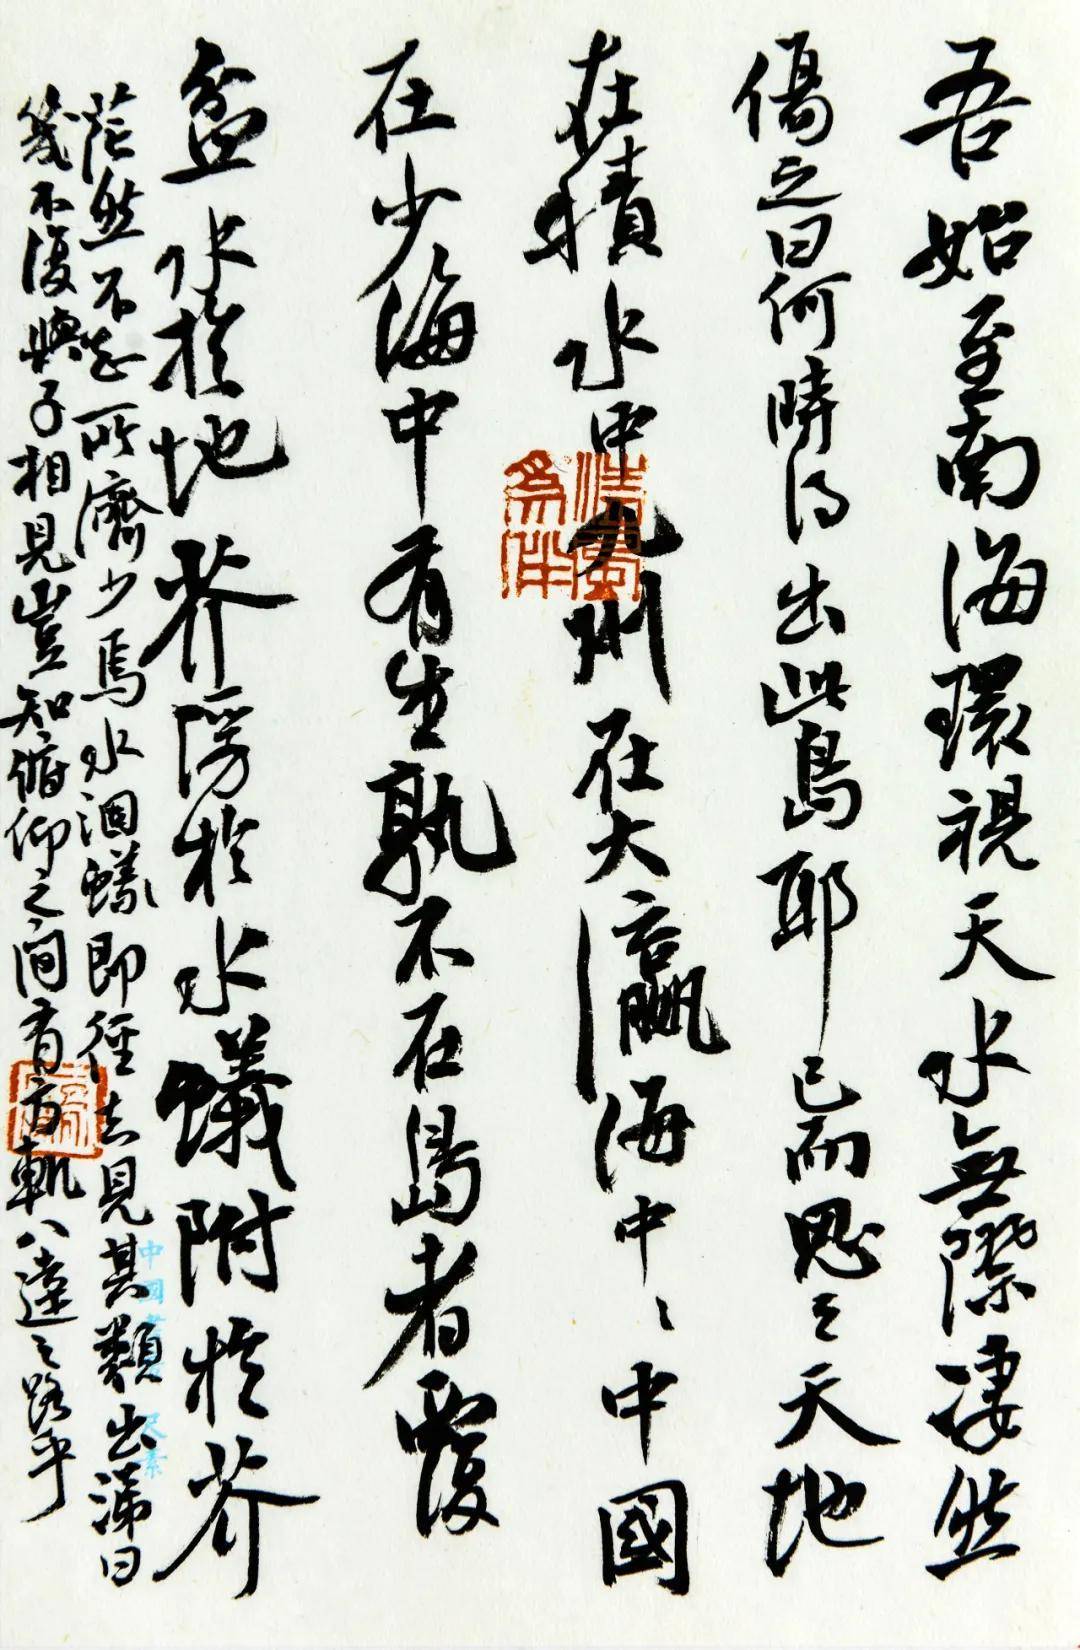 吾始至南海環視天水無際凄然
傷之曰何時得出此島耶已而思之天地
在積水中九州在大瀛海中々中國
在少海中有生孰不在島者覆
盆水於地芥浮於水蟻附於芥
茫然不知所濟少焉水涸蟻即徑去見其類出涕曰
幾不復與子相見豈知俯仰之間有方軌八達之路乎